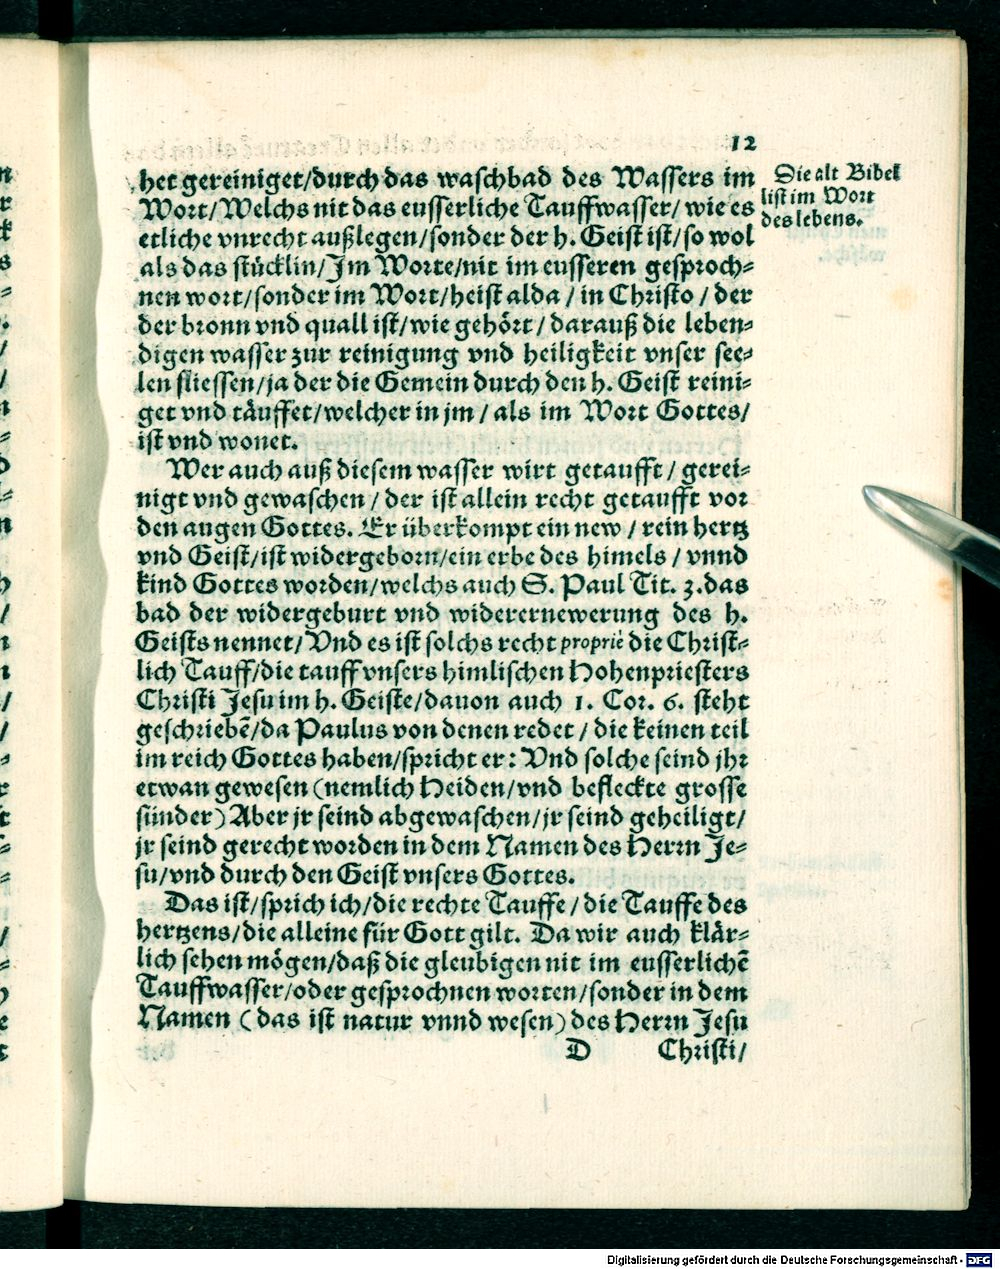 12
het gereiniget/durch das waschbad des Wassers im
Wort/Welchs nit das eusserliche Tauffwasser/ wie es
etliche vnrecht außlegen/sonder der h. Geist ist/so wol
als das stücklin/Jm Worte/nit im eusseren gesproch⸗
nen wort/sonder im Wort/heist alda / in Christo / der
der bronn vnd quall ist/wie gehört/ darauß die leben⸗
digen wasser zur reinigung vnd heiligkeit vnser see⸗
len fliessen/ja der die Gemein durch den h. Geist reini⸗
get vnd täuffet/welcher in jm / als im Wort Gottes/
ist vnd wonet.
Die alt Bibel
list im Wort
des lebens.
Wer auch auß diesem wasser wirt getaufft / gerei⸗
nigt vnd gewaschen / der ist allein recht getaufft vor
den augen Gottes. Er überkompt ein new / rein hertz
vnd Geist/ist widergeborn/ein erbe des himels / vnnd
kind Gottes worden/welchs auch S. Paul Tit. 3. das
bad der widergeburt vnd widerernewerung des h.
Geists nennet/ Vnd es ist solchs recht propriè die Christ⸗
lich Tauff/die tauff vnsers himlischen Hohenpriesters
Christi Jesu im h. Geiste/dauon auch 1. Cor. 6. steht
geschriebē/da Paulus von denen redet / die keinen teil
im reich Gottes haben/spricht er: Vnd solche seind jhr
etwan gewesen (nemlich Heiden/vnd befleckte grosse
sünder) Aber jr seind abgewaschen/jr seind geheiligt/
jr seind gerecht worden in dem Namen des Herrn Je⸗
su/vnd durch den Geist vnsers Gottes.
Das ist/sprich ich/die rechte Tauffe / die Tauffe des
hertzens/die alleine für Gott gilt. Da wir auch klär⸗
lich sehen mögen/daß die gleubigen nit im eusserlichē
Tauffwasser/oder gesprochnen worten/sonder in dem
Namen (das ist natur vnnd wesen) des Herrn Jesu
D Christi/
Digitalisierung gefördert durch die Deutsche Forschungsgemeinschaft - DFG